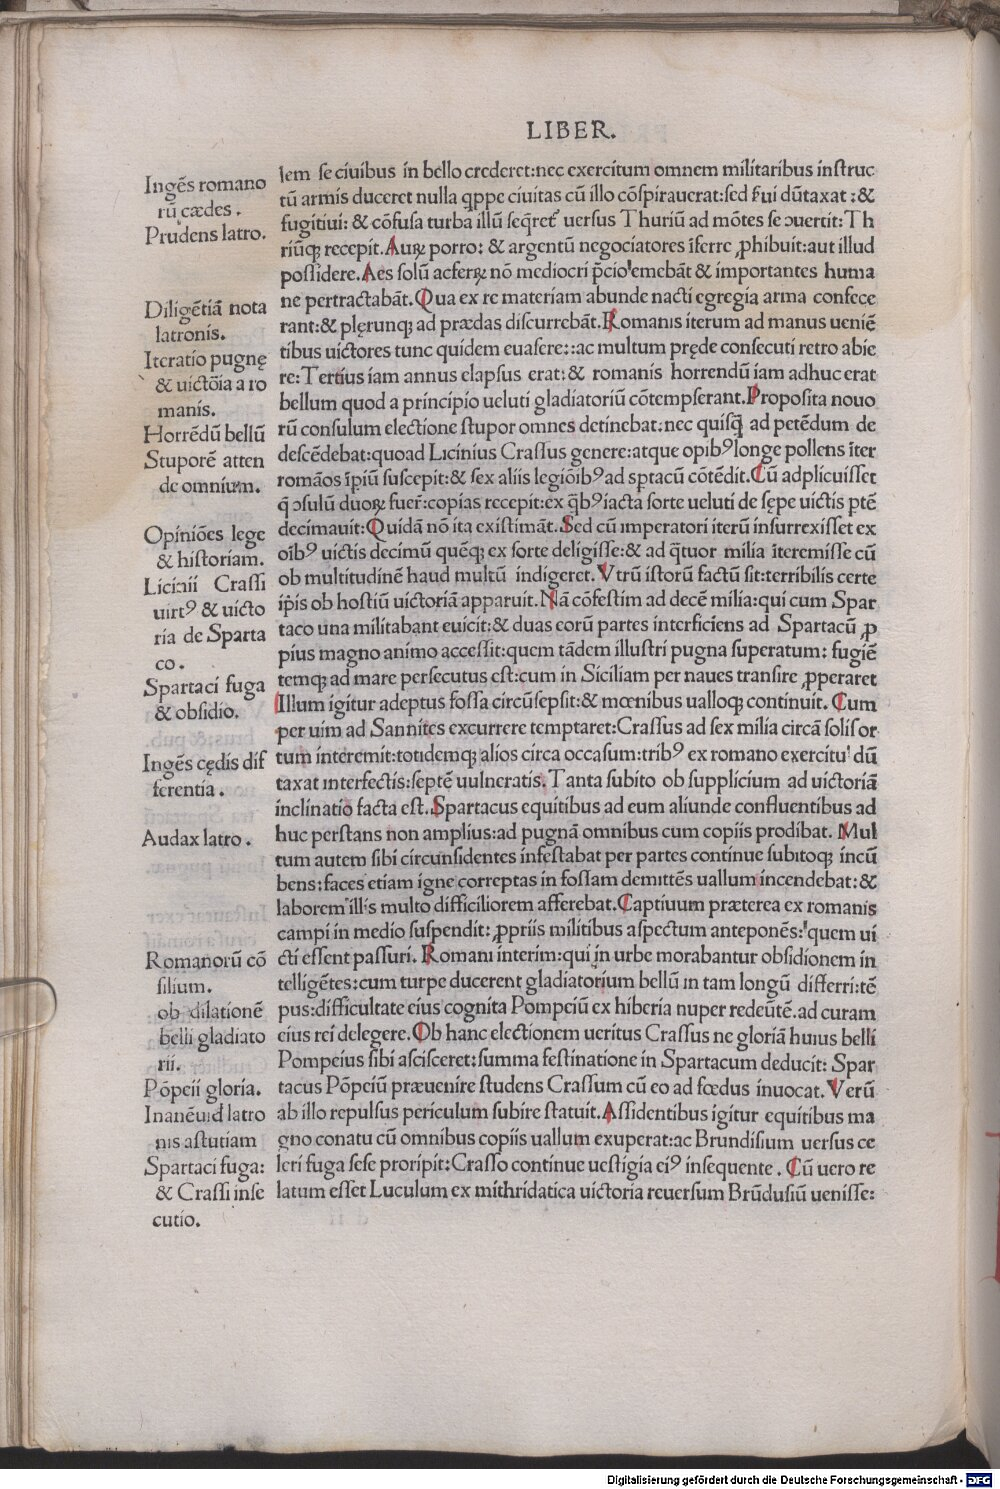 LIBER.
Ingēs romano
rū cædes.
Prudens latro.
Diligētiā nota
latronis.
Iteratio pugnę
& uictōia a ro
manis.
Horrēdū bellū
Stuporē atten
de omnium.
Opiniōes lege
& historiam.
Licinii Crassi
uirtꝰ & uicto
ria de Sparta
co.
Spartaci fuga
& obsidio.
Ingēs cędis dif
ferentia.
Audax latro.
Romanorū cō
silium.
ob dilationē
belli gladiato
rii.
Pōpeii gloria.
Inanē latro
nis astutiam
Spartaci fuga:
& Crassi inse
cutio.
lem se ciuibus in bello crederet:nec exercitum omnem militaribus instruc
tū armis duceret nulla qppe ciuitas cū illo cōspirauerat:sed dūtaxat:&
fugitiui: & cōfusa turba illū seq̄ret uersus Thuriū ad mōtes se ɔuertit:Th
riūqꝫ recepit.Auꝝ porro: & argentū negociatores īferre ꝓhibuit:aut illud
possidere.Aes solū ac ferꝝ nō mediocri p̄cio emebāt & importantes huma
ne pertractabāt.Qua ex re materiam abunde nacti egregia arma confece
rant:& plęrunqꝫ ad prædas discurrebāt.Romanis iterum ad manus ueniē
tibus uictores tunc quidem euasere::ac multum pręde consecuti retro abie
re:Tertius iam annus elapsus erat:& romanis horrendū iam adhuc erat
bellum quod a principio ueluti gladiatoriū cōtempserant.Proposita nouo
rū consulum electione stupor omnes detinebat:nec quisq̄ ad petēdum de
descēdebat:quoad Licinius Crassus genere:atque opibꝰ longe pollens īter
romāos īpiū suscepit:& sex aliis legiōibꝰ ad sptacū cōtēdit.Cū adplicuisset
q̄ ɔsulū duoꝝ fuer̄:copias recepit:ex q̄bꝰ iacta sorte ueluti de sępe uictis ptē
decimauit:Quidā nō ita existimāt.Sed cū imperatori iterū insurrexisset ex
oībꝰ uictis decimū quēqꝫ ex sorte deligisse:& ad q̄tuor milia īteremisse cū
ob multitudinē haud multū indigeret.Vtrū istorū factū sit:terribilis certe
ip̄is ob hostiū uictoriā apparuit.Nā cōfestim ad decē milia:qui cum Spar
taco una militabant euicit:& duas eorū partes interficiens ad Spartacū ꝓ
pius magno animo accessit:quem tādem illustri pugna superatum: fugiē
temqꝫ ad mare persecutus est:cum in Siciliam per naues transire ꝓperaret
Illum igitur adeptus fossa circūsepsit:& mœnibus ualloqꝫ continuit. Cum
per uim ad Sannites excurrere temptaret:Crassus ad sex milia circā solis or
tum interemit:totidemqꝫ alios circa occasum:tribꝰ ex romano exercitu dū
taxat interfectis:septē uulneratis.Tanta subito ob supplicium ad uictoriā
inclinatio facta est.Spartacus equitibus ad eum aliunde confluentibus ad
huc perstans non amplius:ad pugnā omnibus cum copiis prodibat. Mul
tum autem sibi circunsidentes infestabat per partes continue subitoqꝫ incū
bens:faces etiam igne correptas in fossam demittēs uallum incendebat:&
laborem illis multo difficiliorem afferebat.Captiuum præterea ex romanis
campi in medio suspendit: ꝓpriis militibus aspectum anteponēs:quem ui
cti essent passuri. Romani interim:qui in urbe morabantur obsidionem in
telligētes:cum turpe ducerent gladiatorium bellū in tam longū differri:tē
pus:difficultate eius cognita Pompeiū ex hiberia nuper redeūtē.ad curam
eius rei delegere.Ob hanc electionem ueritus Crassus ne gloriā huius belli
Pompeius sibi ascisceret:summa festinatione in Spartacum deducit: Spar
tacus Pōpeiū præuenire studens Crassum cū eo ad fœdus inuocat.Verū
ab illo repulsus periculum subire statuit.Assidentibus igitur equitibus ma
gno conatu cū omnibus copiis uallum exuperat:ac Brundisium uersus ce
leri fuga sese proripit:Crasso continue uestigia eiꝰ insequente. Cū uero re
latum esset Luculum ex mithridatica uictoria reuersum Brūdusiū uenisse:
Digitalisierung gefördert durch die Deutsche Forschungsgemeinschaft - DFG